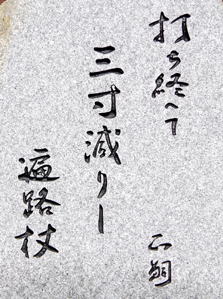 打ち終へて
三寸減りし
遍路杖
正嗣